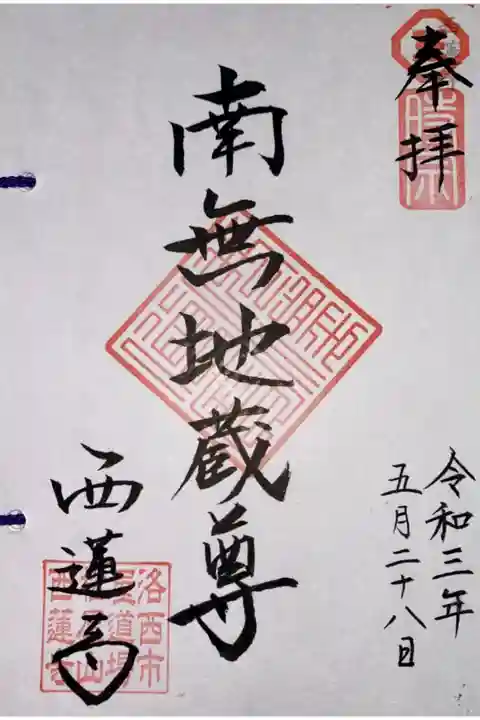 奉拝
時宗
令和三年
五月二十八日
南無地蔵尊
西蓮寺
洛西市
道場
山
西蓮寺